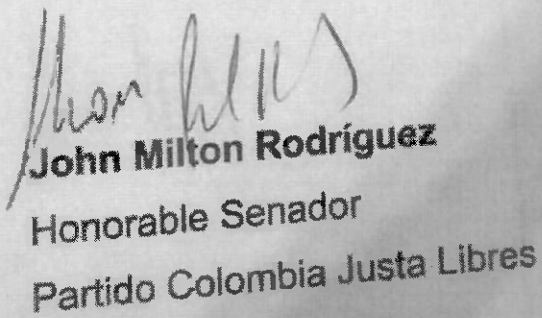 John Milton Rodríguez
Honorable Senador
Partido Colombia Justa Libres